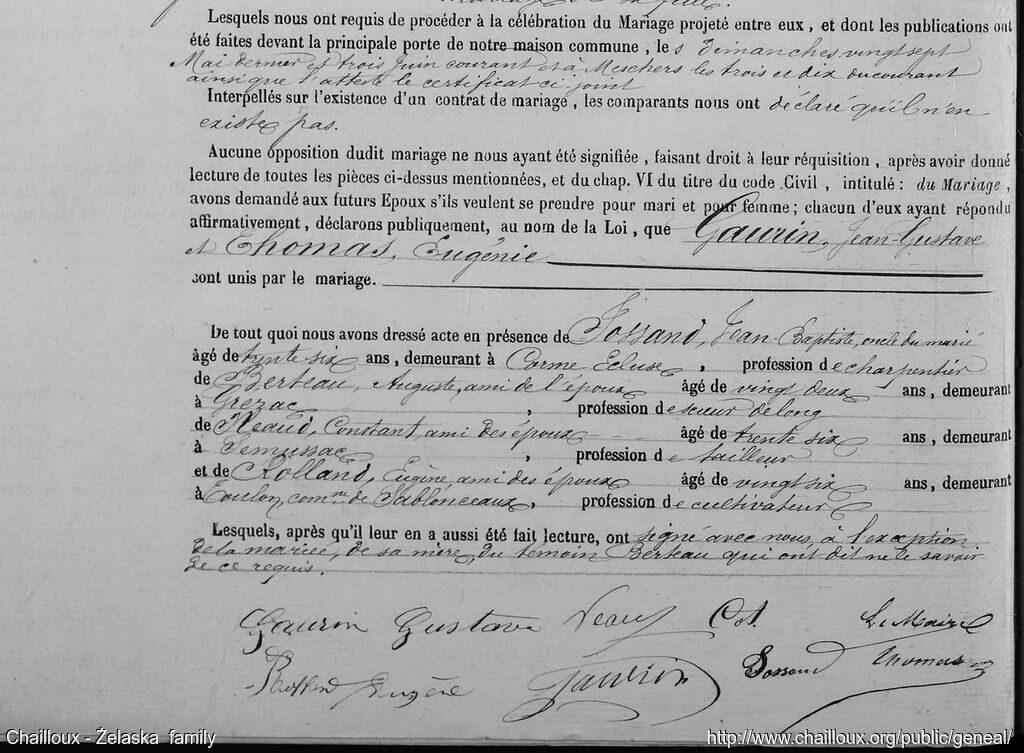 mariage de sa fille.
Lesquels nous ont requis de procéder à la célébration du Mariage projeté entre eux, et dont les publications ont
été faites devant la principale porte de notre maison commune, le s dimanches vingt sept
Mai dernier et trois Juin courant et à Meschers les trois et dix du courant
ainsi que l'atteste le certificat ci joint
Interpellés sur l'existence d'un contrat de mariage, les comparants nous ont déclaré qu'il n'en
existe pas.
Aucune opposition dudit mariage ne nous ayant été signifiée, faisant droit à leur réquisition, après avoir donné
lecture de toutes les pièces ci-dessus mentionnées, et du chap. VI du titre du code Civil, intitulé : du Mariage,
avons demandé aux futurs Epoux s'ils veulent se prendre pour mari et pour femme; chacun d'eux ayant répondu
affirmativement, déclarons publiquement, au nom de la Loi, que Gaurin, Jean-Gustave
et Thomas, Eugénie
sont unis par le mariage.
De tout quoi nous avons dressé acte en présence de Jossand, Jean-Baptiste, oncle du marié
âgé de trente six ans, demeurant à Corme-Ecluse, profession de charpentier
de Berteau, Auguste, ami de l'époux âgé de vingt deux ans, demeurant
à Grezac, profession de scieur de long
de Neaud, Constant, ami des époux âgé de trente six ans, demeurant
à Semussac, profession de tailleur
et de Rolland, Eugène, ami des époux âgé de vingt six ans, demeurant
à Toulon, comne de Sablonceaux, profession de cultivateur
Lesquels, après qu'il leur en a aussi été fait lecture, ont signé avec nous, à l'exception
de la mariée, de sa mère, du témoin Berteau qui ont dit ne le savoir
de ce requis.
Gaurin Gustave Ct. Le Maire
Eugène Gaurion Sossand Thomas
Chailloux - Żelaska family http://www.chailloux.org/public/geneal/